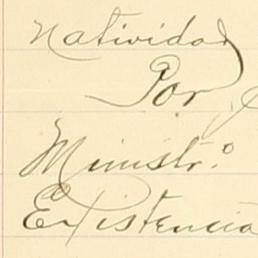 Natividad
Por
Ministr.o
Existencia